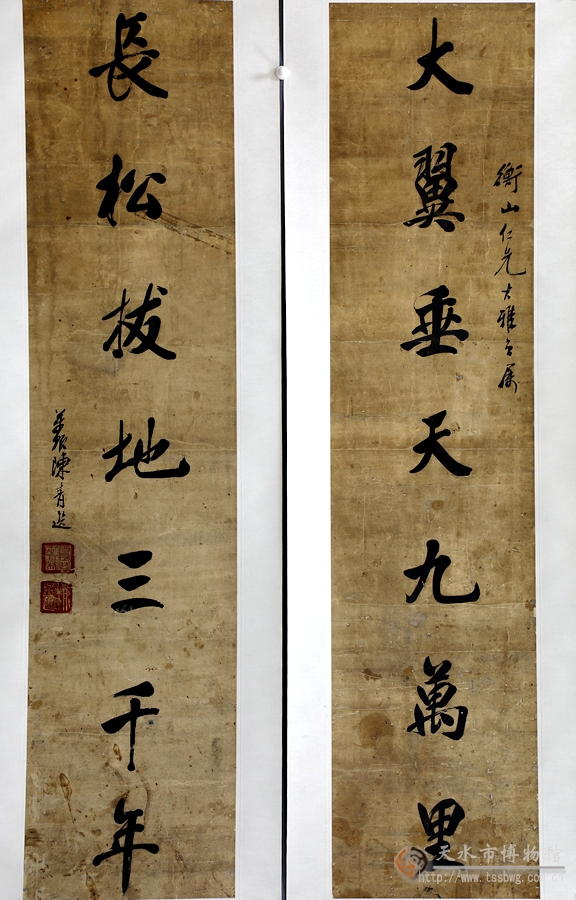 衡山仁兄大雅之属
大翼垂天九萬里
長松拔地三千年
陳青選
天水市博物館
http://www.tssbwg.com.cn